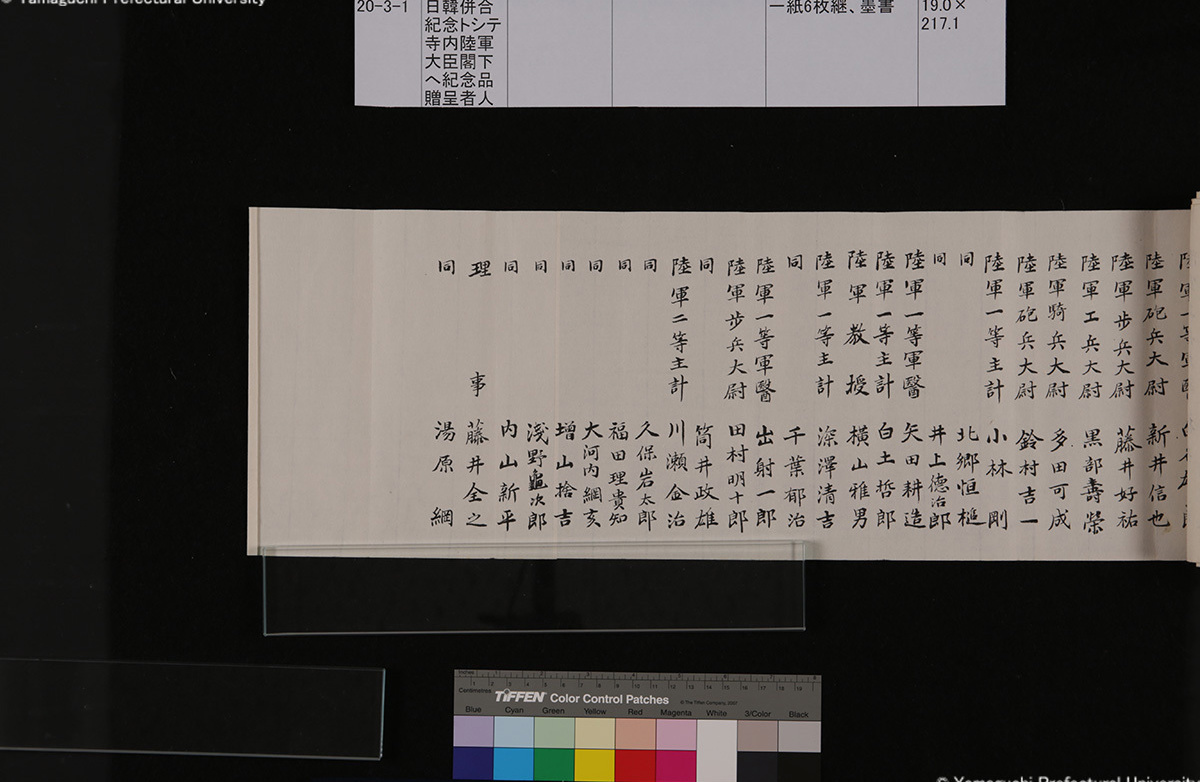 © Yamaguchi Prefectural University
20-3-1
日韓併合
紀念トシテ
寺内陸軍
大臣閣下
へ紀念品
贈呈者人
一紙6枚継、墨書
19.0×
217.1
陸軍一等軍醫
陸軍砲兵大尉 新井信也
陸軍歩兵大尉 藤井好祐
陸軍工兵大尉 黒部壽榮
陸軍騎兵大尉 多田可成
陸軍砲兵大尉 鈴村吉一
陸軍一等主計 小林剛
同 北郷恒樋
同 井上德治郎
陸軍一等軍醫 矢田耕造
陸軍一等主計 白土哲郎
陸軍教授 横山雅男
陸軍一等主計 深澤清吉
同 千葉郁治
陸軍一等軍醫 出射一郎
陸軍歩兵大尉 田村明十郎
同 筒井政雄
陸軍二等主計 川瀬金治
同 久保岩太郎
同 福田理貴知
同 大河内綱亥
同 増山捨吉
同 淺野龜次郎
同 内山新平
理事 藤井全之
同 湯原綱
Inches
Centimetres
TIFFEN Color Control Patches
© The Tiffen Company, 2007
Blue Cyan Green Yellow Red Magenta White 3/Color Black
© Yamaguchi Prefectural University